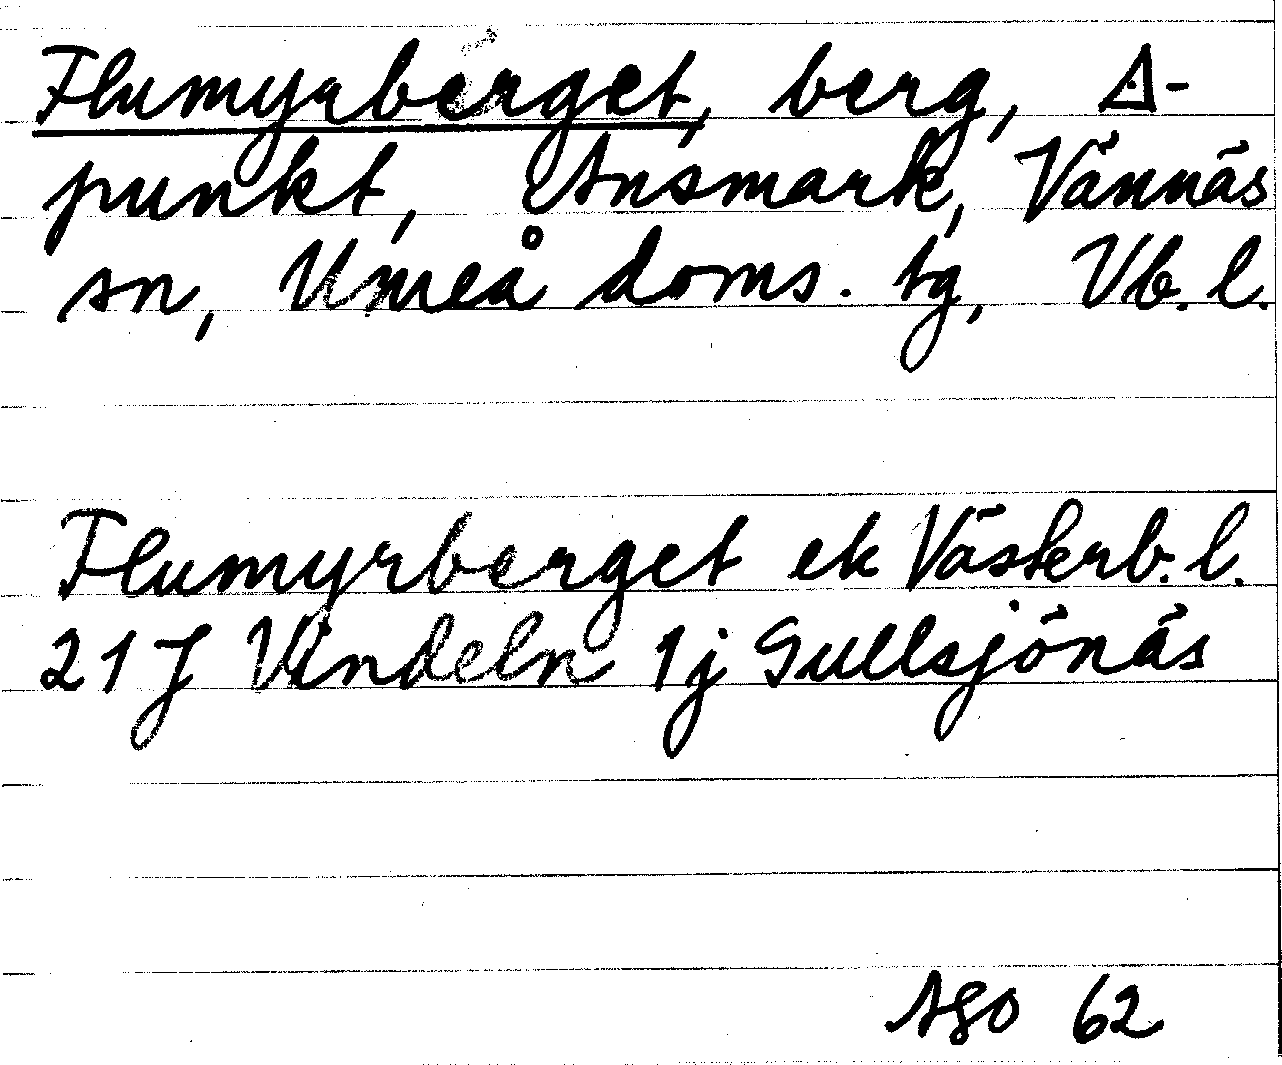 Flumyrberget, berg, △-
punkt, Ansmark, Vännäs
sn, Umeå doms. tg, Vb. l.
Flumyrberget ek Västerb. l.
21 J Vindeln 1j Gullsjönäs
AGO 62